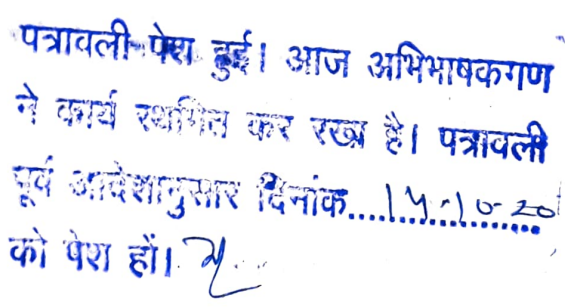 पत्रावली पेश हुई। आज अभिभाषकगण
ने कार्य स्थगित कर रखा है। पत्रावली
पूर्व आदेशानुसार दिनांक....14-10-20
को पेश हों।